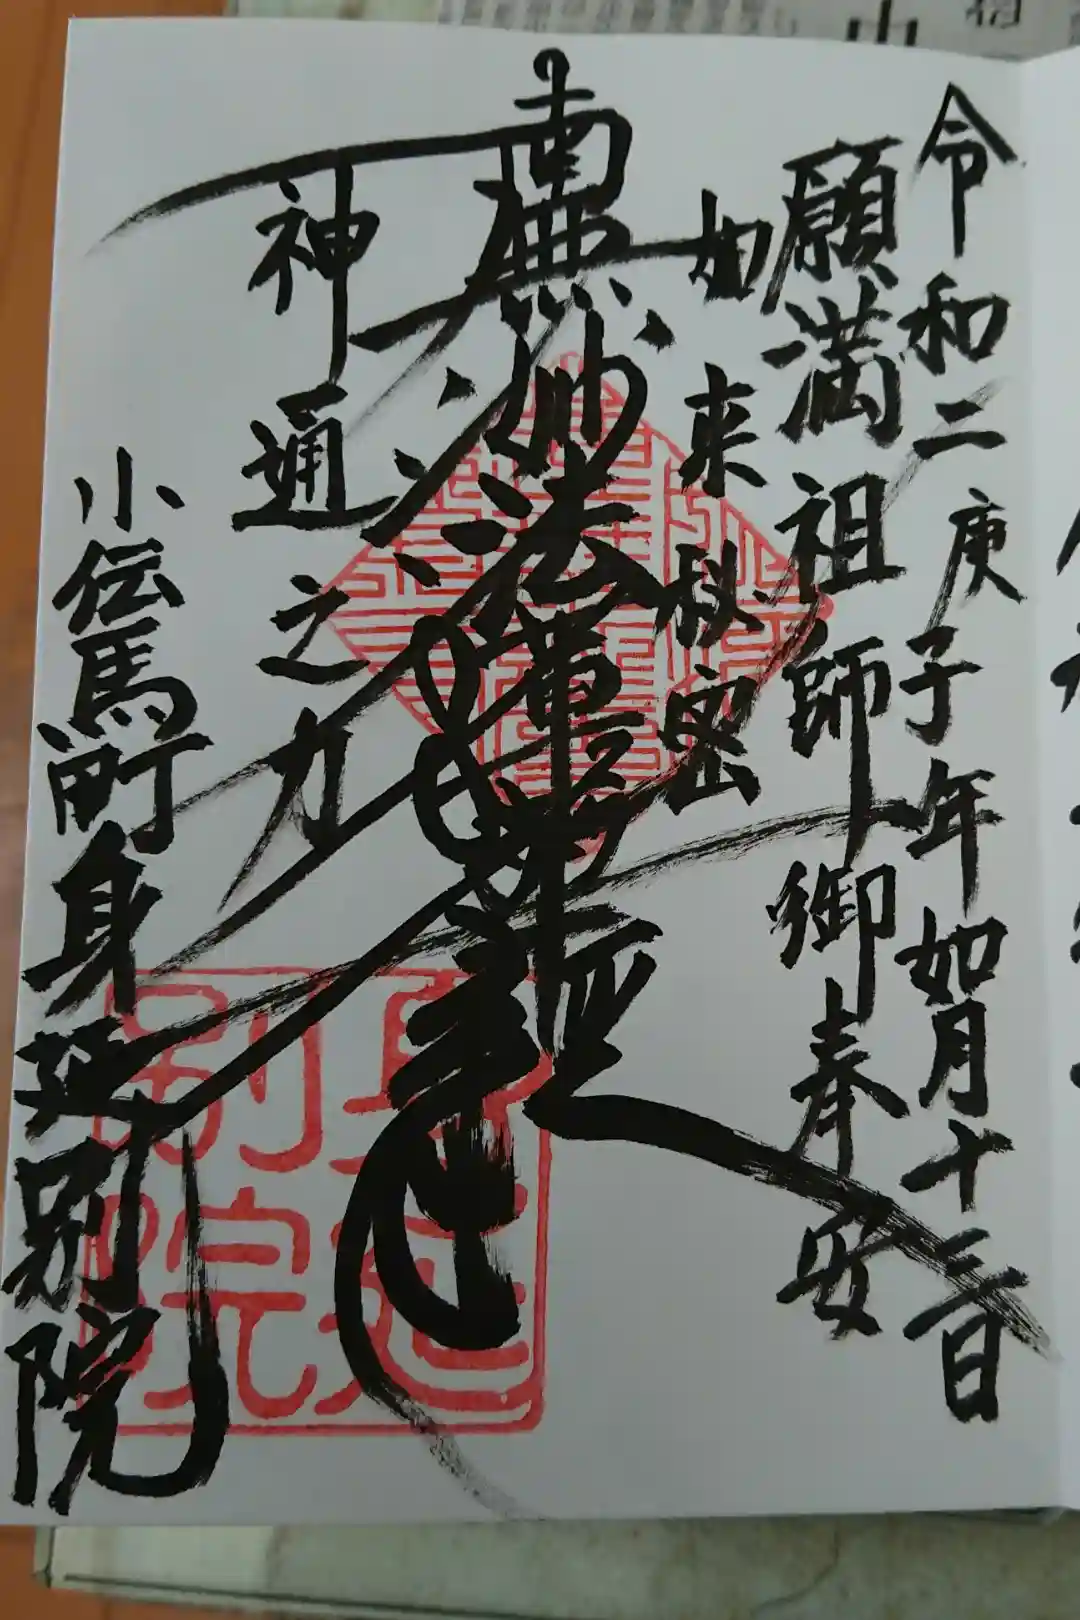 令和二庚子年如月十三日
願満祖師御奉安
如来秘密
南無妙法蓮華経
神通之力
小伝馬町身延別院
身延
別院